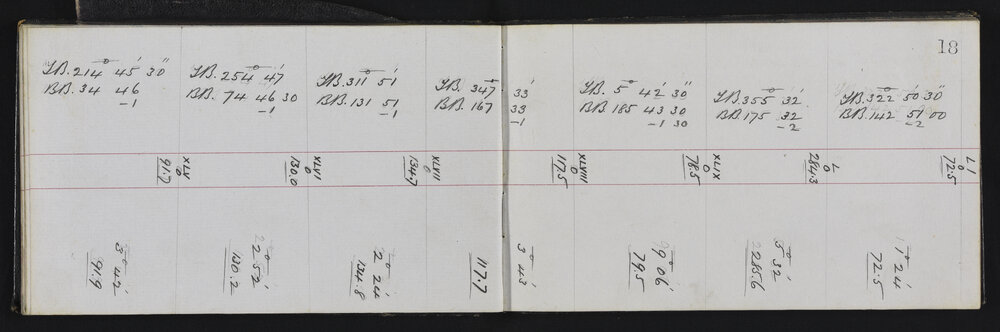 18
F.B. 214° 45' 30"
B.B. 34 46
-1
F.B. 254° 47'
B.B. 74 46 30
-1
F.B. 311° 51'
B.B. 131 51
-1
F.B. 347° 33'
B.B. 167 33
-1
F.B. 5° 42' 30"
B.B. 185 43 30
-1 30
F.B. 355° 32'
B.B. 175 32
-2
F.B. 322° 50' 30"
B.B. 142 51 00
-2
XLV
0
91.7
XLVI
0
130.0
XLVII
0
134.7
XLVIII
0
117.5
XLIX
0
78.5
L
0
284.3
LI
0
72.5
3° 42'
91.9
2° 52'
130.2
2° 24'
134.8
3° 43'
117.7
9° 06'
79.5
5° 32'
285.6
1° 24'
72.5